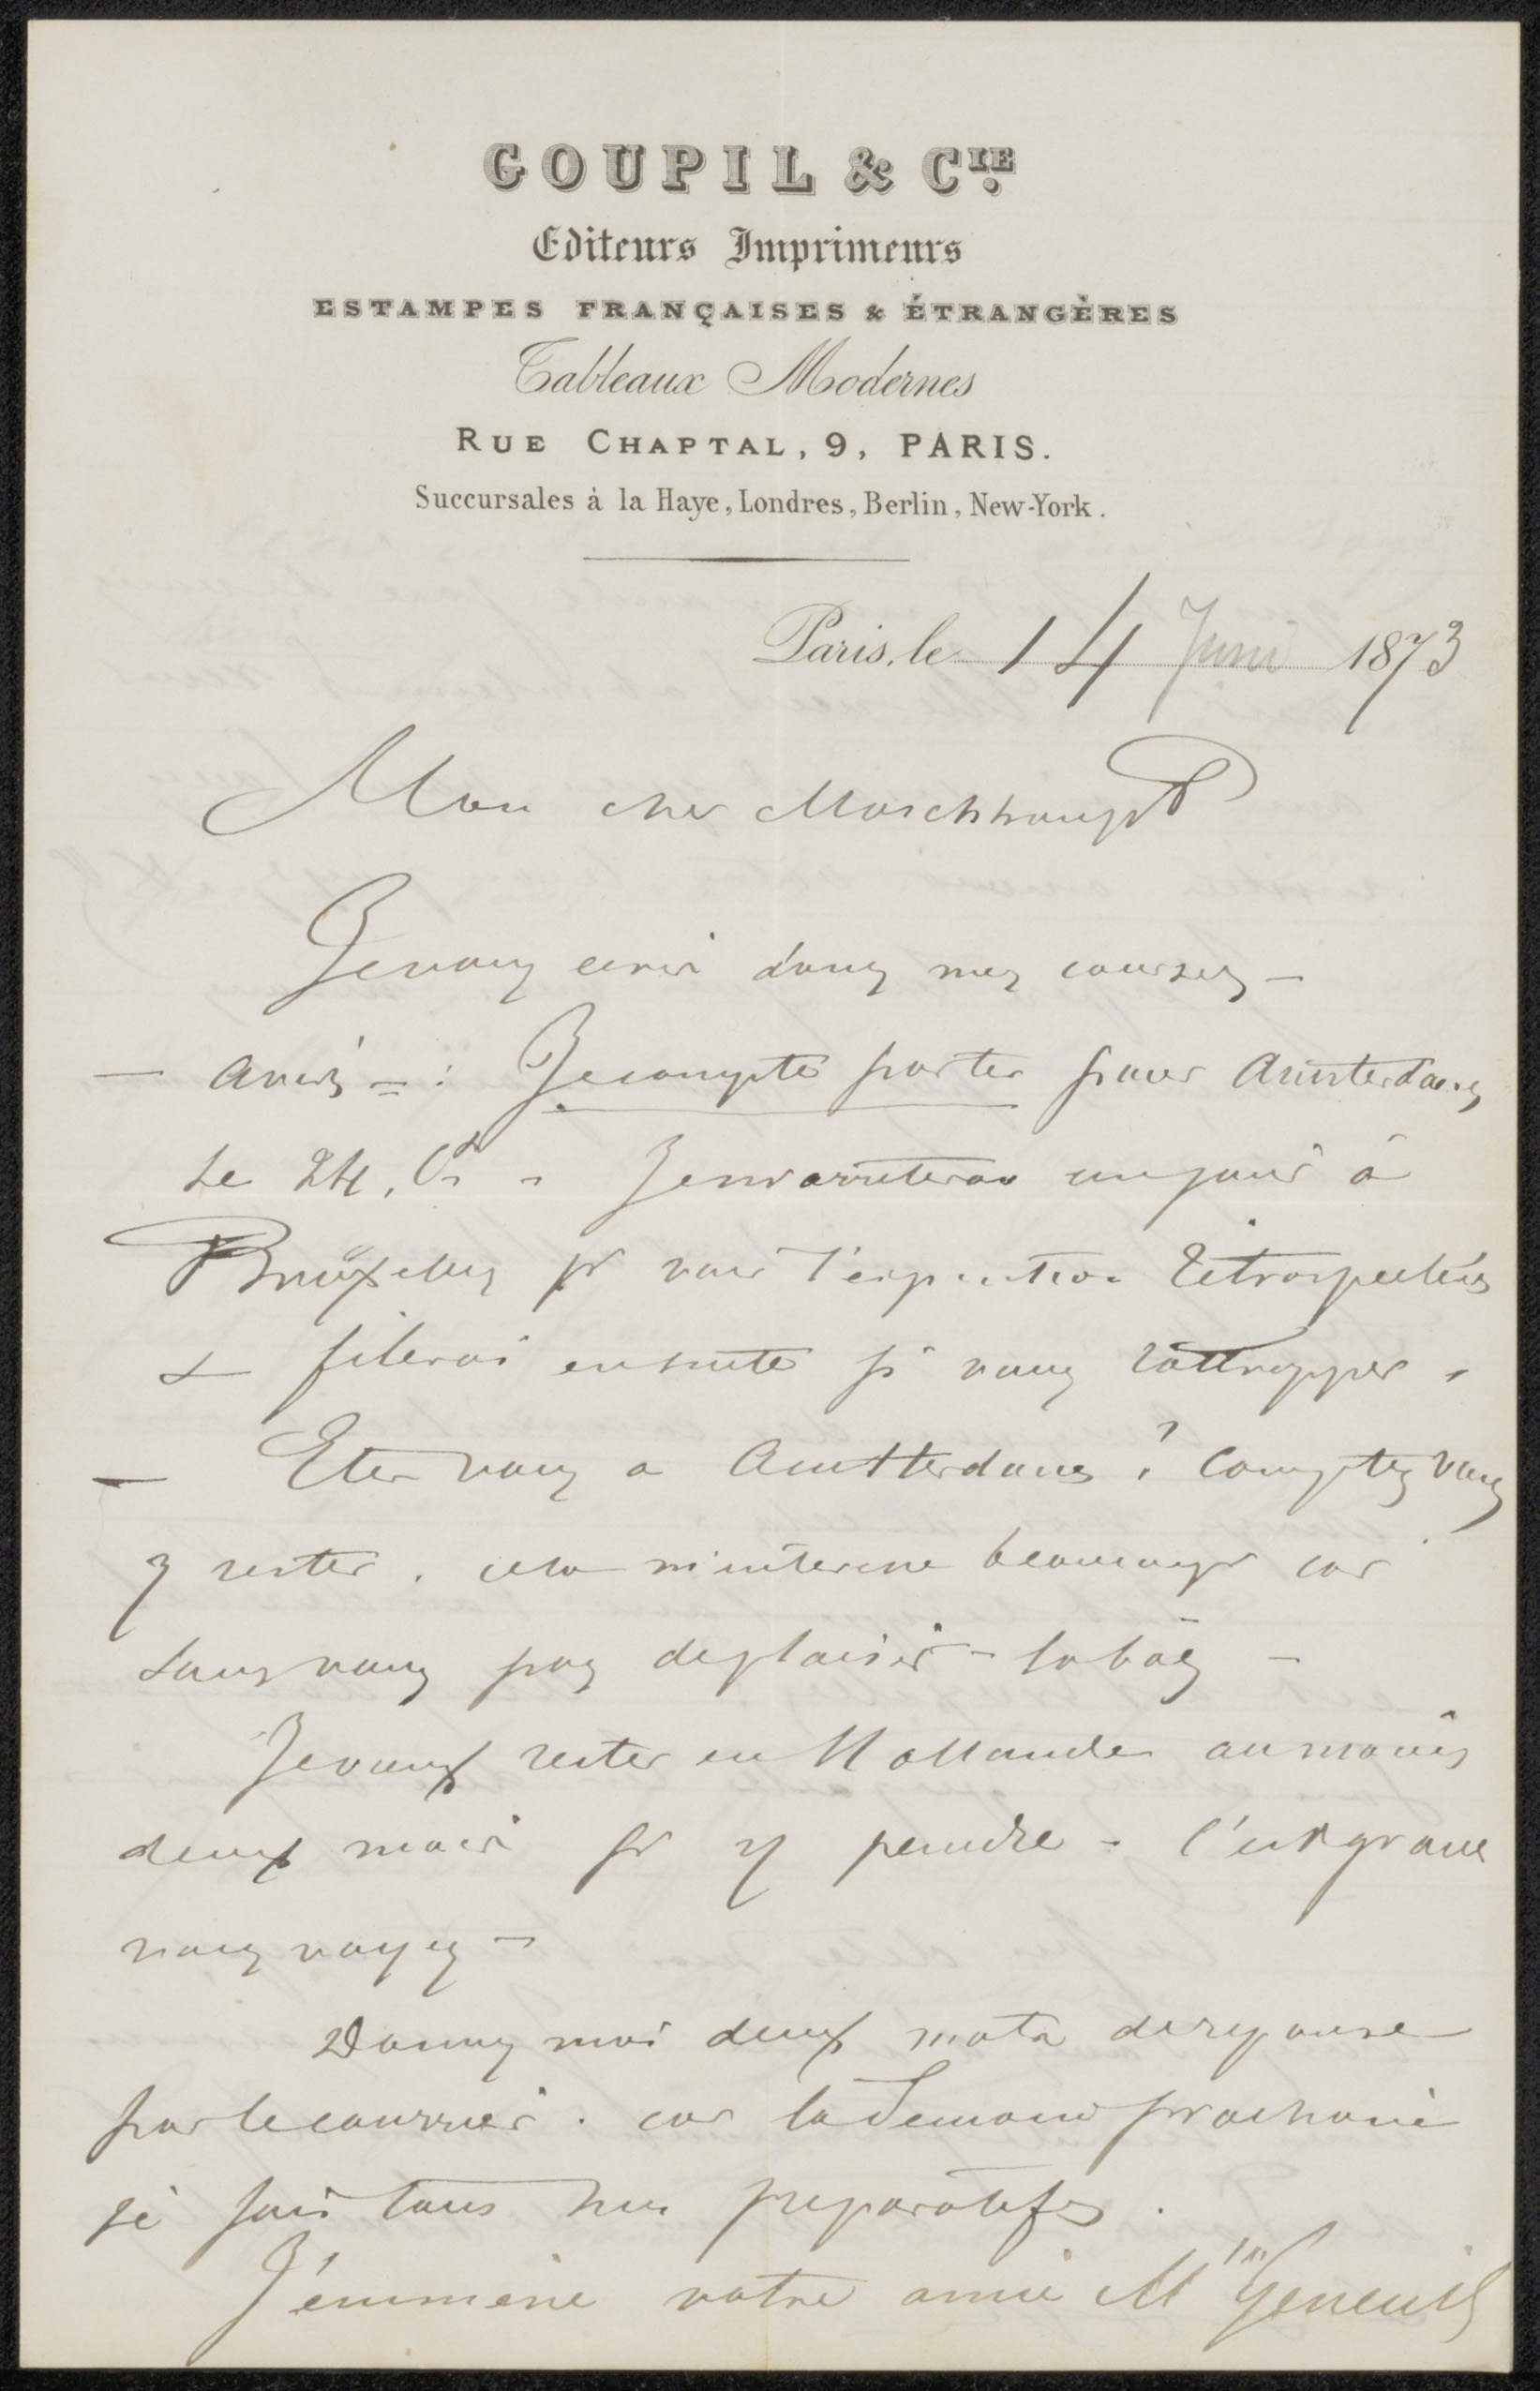 GOUPIL & CIE.
Editeurs Imprimeurs
ESTAMPES FRANÇAISES & ÉTRANGÈRES
Tableaux Modernes
RUE CHAPTAL, 9, PARIS.
Succursales à la Haye, Londres, Berlin, New-York.
Paris, le 14 Juni 1873
Mon cher
Je vous ecris dans mes courses –
– avis = : Je compte partir pour Amsterdam
le 24, Ct - Je m'arreterai un jour à
Bruxelles pr voir l'exposition Retrospective
& filerai ensuite pr vous rattrapper -
– Etes vous a Amsterdam ? Comptez vous
y rester. cela m'interesse beaucoup car
sans vous pas de plaisir – labàs –
Je veux rester en Hollande au moins
deux mois pr y peindre - c'est grave
vous voyez –
Donnez moi deux mots de reponse
par le courrier. car la Semaine prochaine
je fais tous mes preparatifs.
J'emmene votre amie Mlle